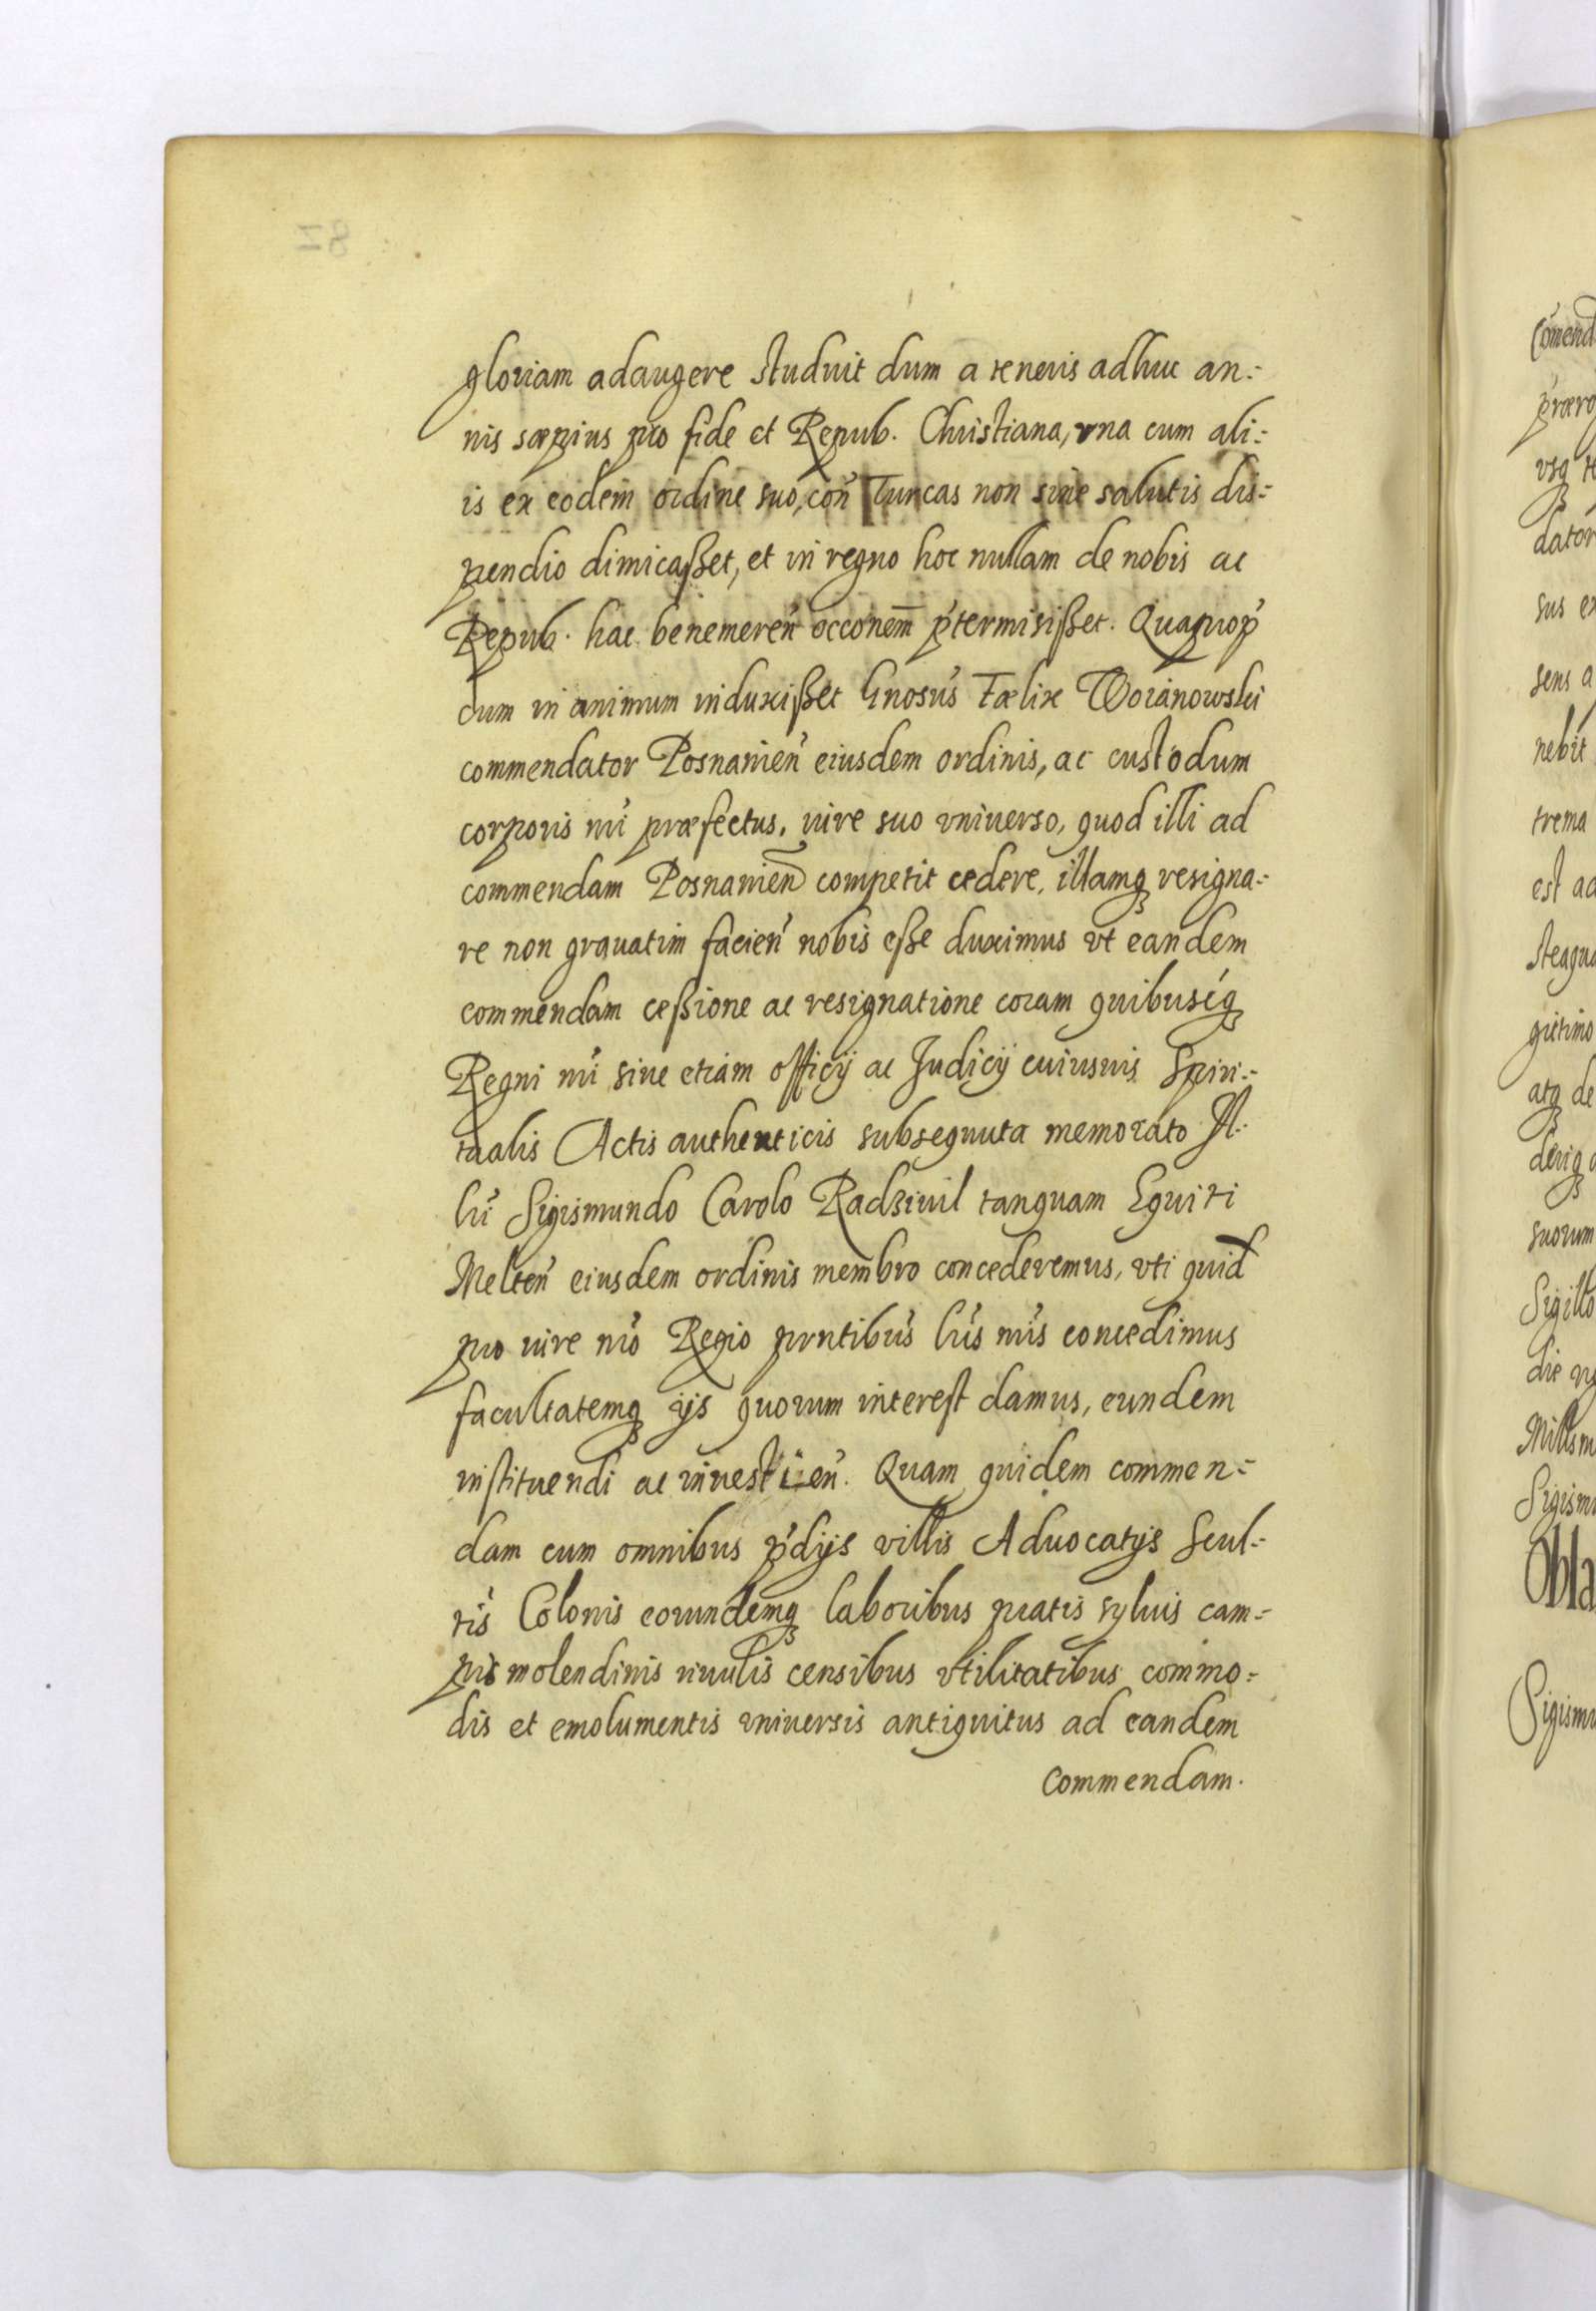 gloriam adaugere studuit dum a teneris adhuc an:
nis sæpius pro fide et Repub. Christiana, vna cum ali:
is ex eodem ordine suo, con̄ Turcas non sine salutis dis:
pendio dimicaßet, et in regno hoc nullam de nobis ac
Repub. hac benemeren̄ occonem̄ p̄termisißet. Quaprop̄
cum in animum induxißet Gnosus Fœlix Woianowski
commendator Posnanien̄ eiusdem ordinis, ac custodum
corporis nri præfectus, iure suo vniuerso, quod illi ad
commendam Posnanien̄ competit cedere, illamq resigna:
re non grauatim facien̄ nobis eße duximus vt eandem
commendam ceßione ac resignatione coram quibusuiq
Regni nri siue etiam officij ac Iudicij cuiusuis Spiri:
tualis Actis authenticis subsequuta memorato Il:
lri Sigismundo Carolo Radziuil tanquam Equiti
Melten̄ eiusdem ordinis membro concederemus, vti quid
pro iure nro Regio prntibus lris nris concedimus
facultatemq ijs quorum interest damus, eundem
instituendi ac inuestien̄. Quam quidem commen:
dam cum omnibus p̄dijs villis Aduocatijs Scul:
tis Colonis eorundemq laboribus pratis syluis cam:
pis molendinis riuulis censibus vtilitatibus commo:
dis et emolumentis vniuersis antiquitus ad eandem
commendam.